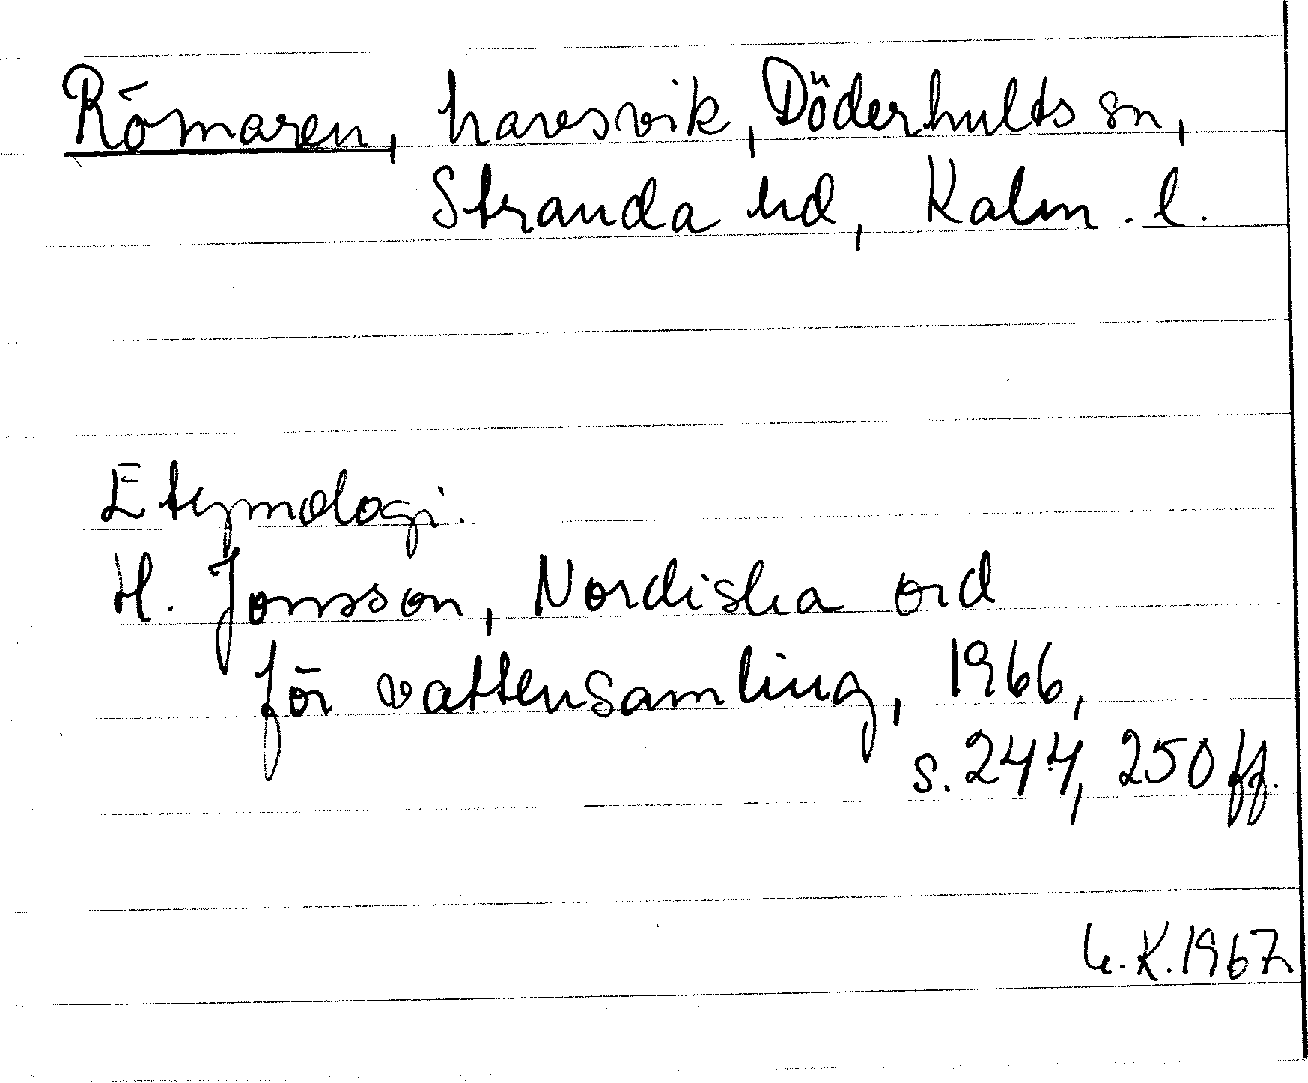 Römaren, havsvik, Döderhults sn,
Stranda hd, Kalm. l.
Etymologi.
H. Jonsson, Nordiska ord
för vattensamling, 1966,
s. 244, 250 ff.
K. 1967